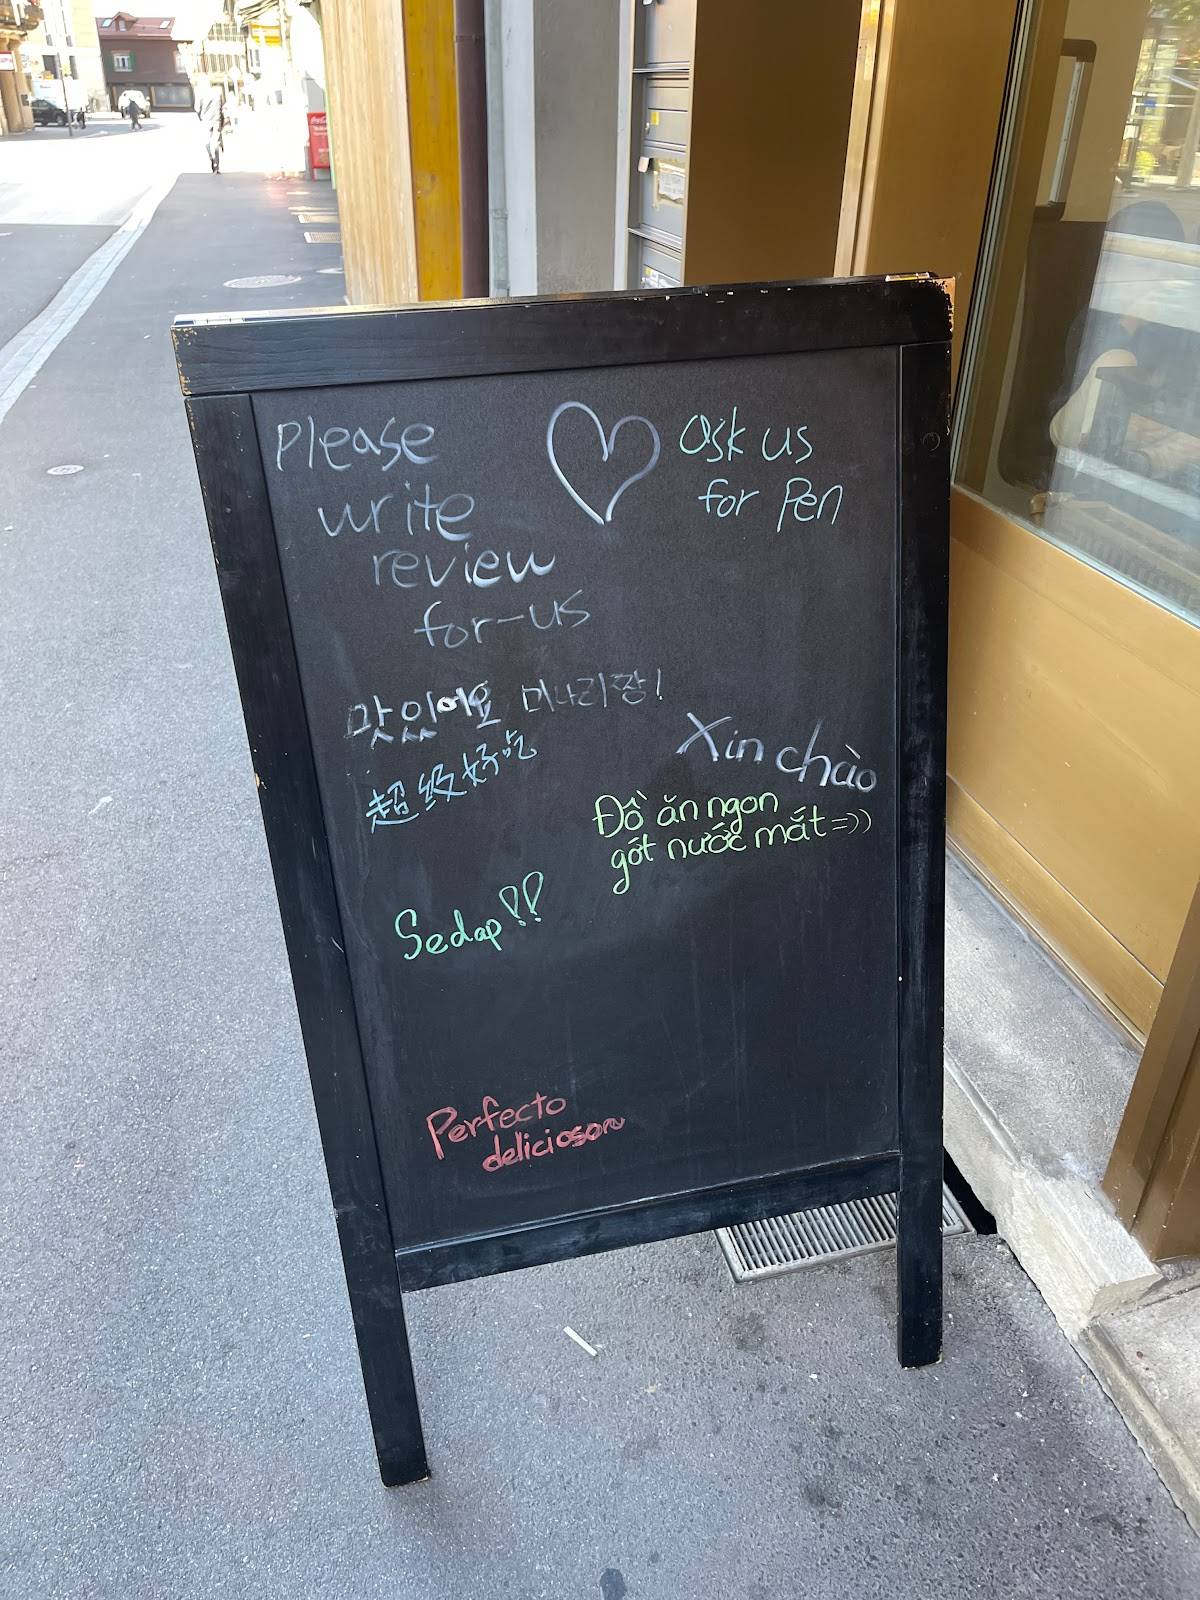 Please
write
review
for-us
Ask us
for Pen
맛있어요 미나리짱!
超级好吃
Xin chào
Đồ ăn ngon
gớt nước mắt =))
Sedap!!
Perfecto
delicioson